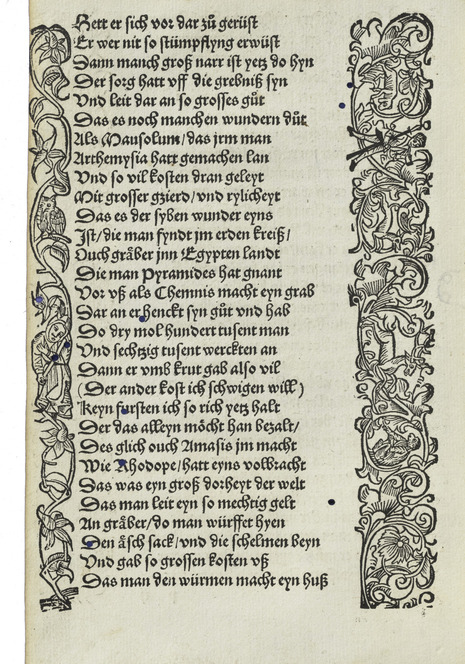 Hett er sich vor dar zů gerüst
Er wer nit so stümpflyng erwüst
Dann manch groß narr ist yetz do hyn
Der sorg hatt vff die grebniß syn
Vnd leit dar an so grosses gůt
Das es noch manchen wundern důt
Als Mausolum/das jrm man
Arthemysia hatt gemachen lan
Vnd so vil kosten dran geleyt
Mit grosser gzierd/vnd rylicheyt
Das es der syben wunder eyns
Ist/die man fyndt jm erden kreiß/
Ouch gräber jnn Egypten landt
Die man Pyramides hat gnant
Vor vß als Chemnis macht eyn grab
Dar an er henckt syn gůt vnd hab
Do dry mol hundert tusent man
Vnd sechtzig tusent werckten an
Dann er vmb krut gab also vil
(Der ander kost ich schwigen will)
Keyn fursten ich so rich yetz halt
Der das alleyn möcht han bezalt/
Des glich ouch Amasis jm macht
Wie Rhodope/hatt eyns volbracht
Das was eyn groß dorheyt der welt
Das man leit eyn so mechtig gelt
An gräber/do man würffet hyen
Den äsch sack/vnd die schelmen beyn
Vnd gab so grossen kosten vß
Das man den würmen macht eyn huß